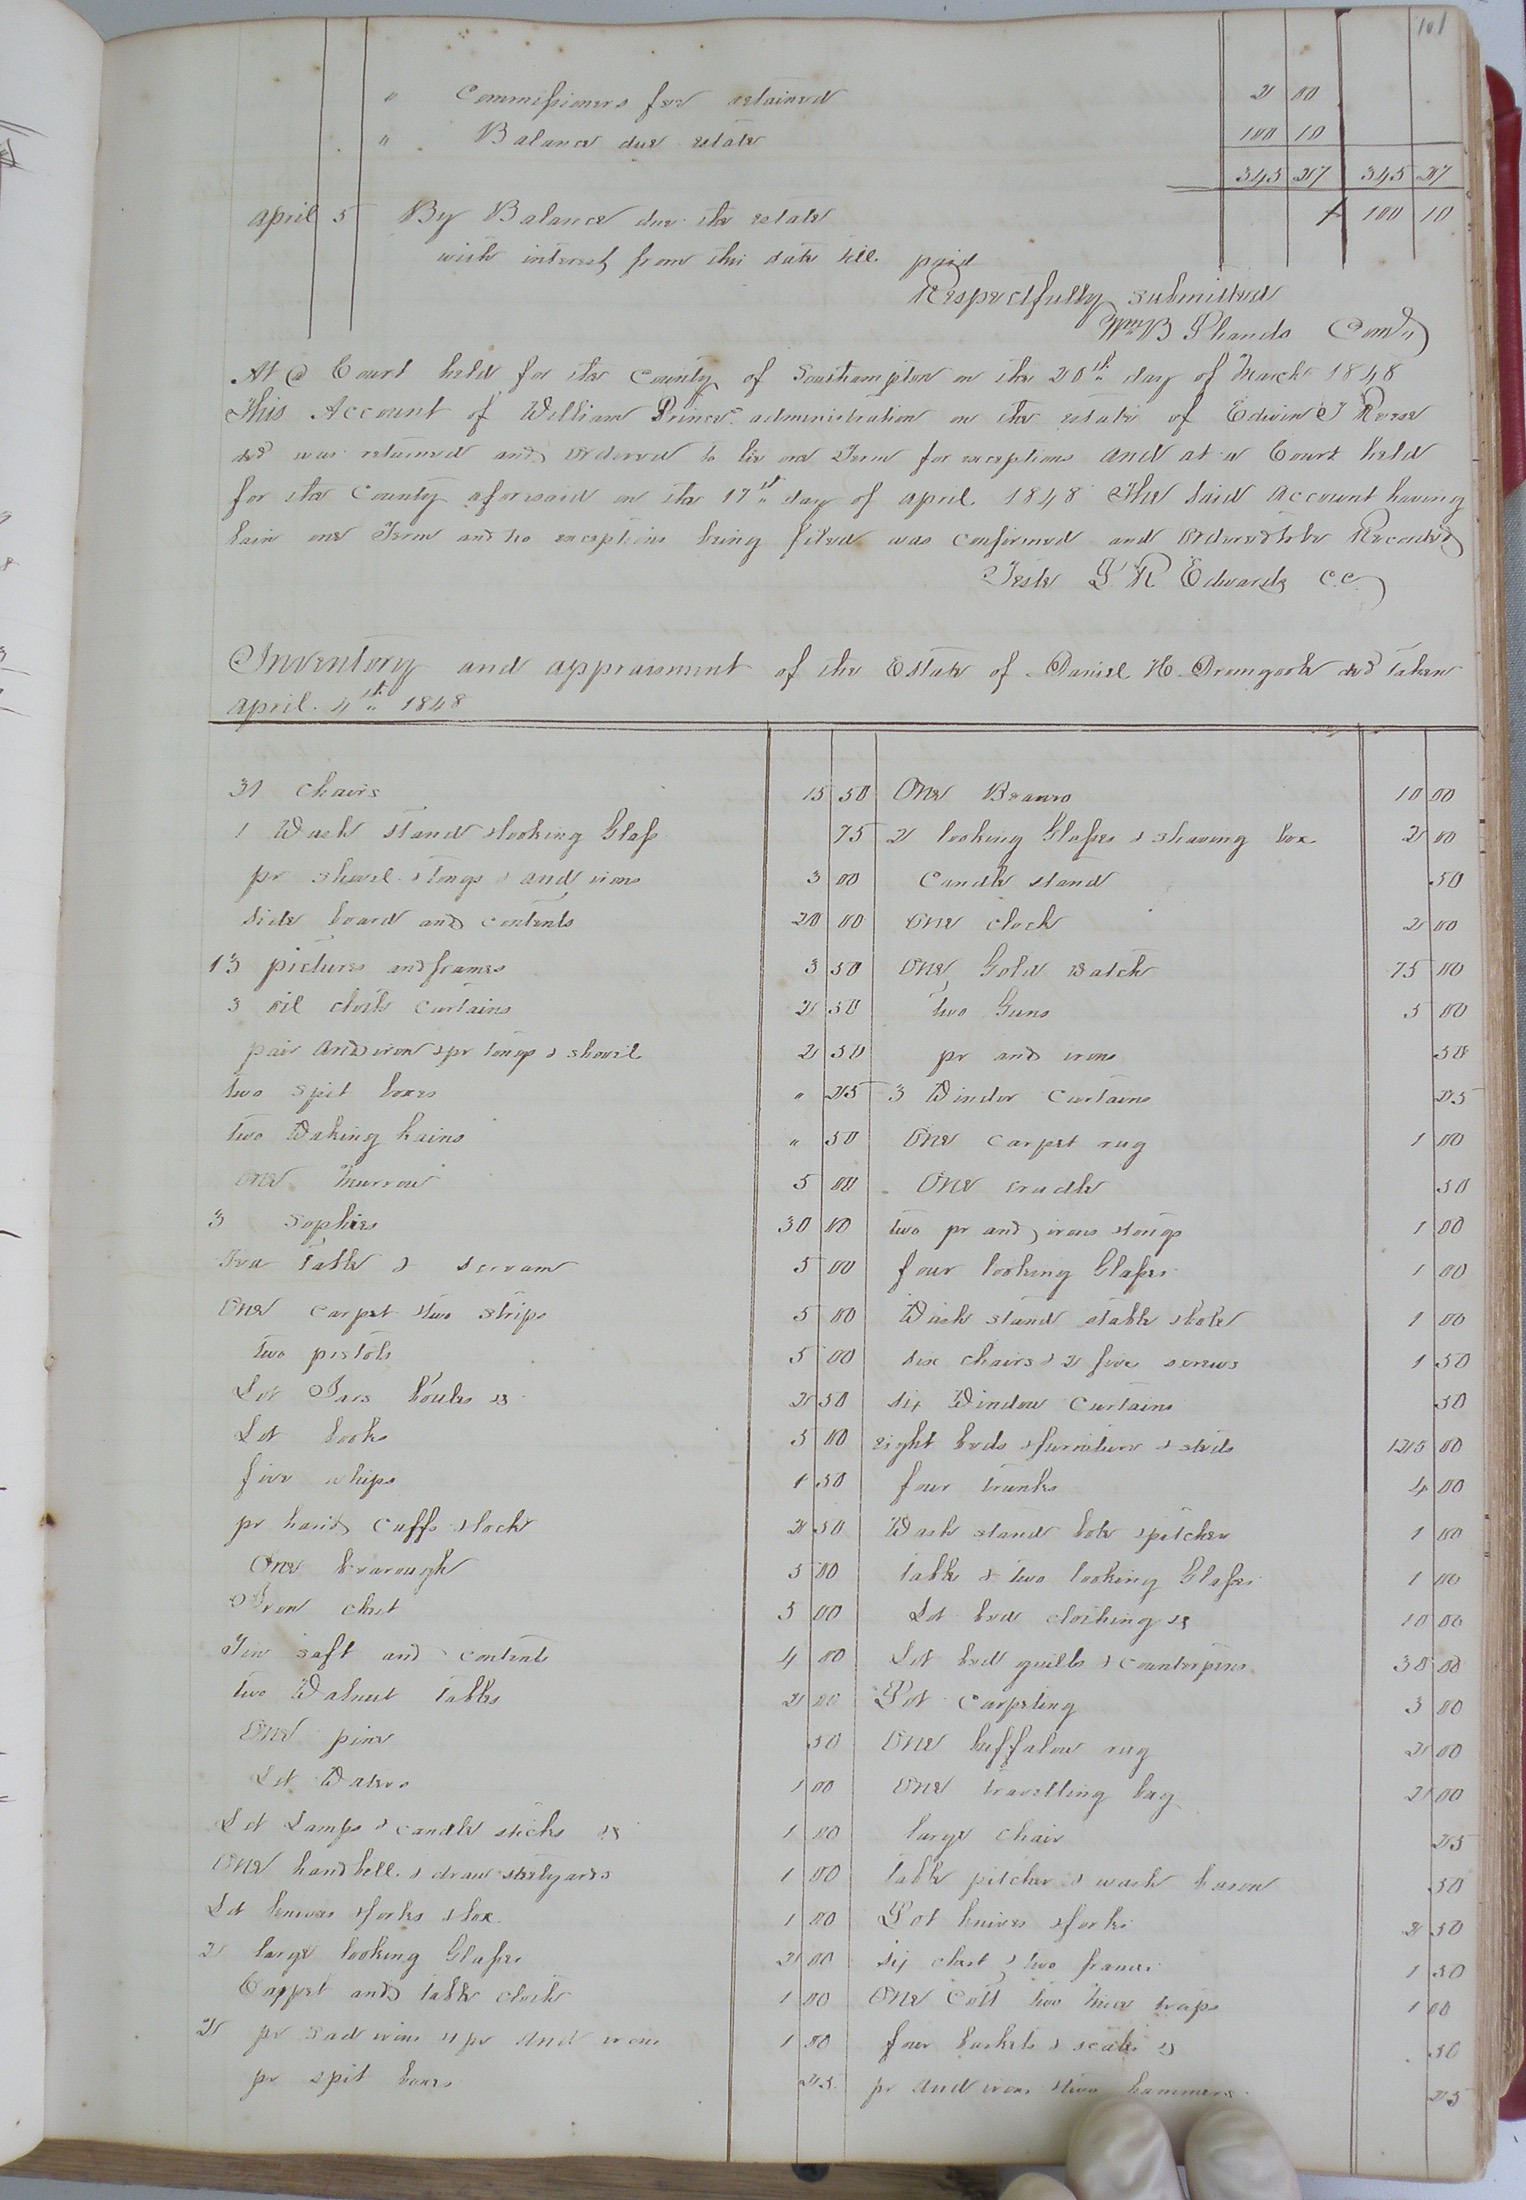 101
" Commissioners fee retained 2 00
" Balance due estate 100 10
345 27 345 27
April 5 By Balance due the estate 100 10
with interest from this date till paid
Respectfully submitted
Wm B Shands Com.r
At a Court held for the County of Southampton on the 20th day of March 1848
This Account of William Prince administration on the estate of Edwin T Reese
decd was returned and ordered to lie one Term for exceptions and at a Court held
for the County aforesaid on the 17th day of april 1848 The said Account having
lain one Term and no exceptions being filed was confirmed and Ordered to be Recorded
Teste L R Edwards C.C.
Inventory and appraisment of the Estate of Daniel H Dromgoole decd taken
April 4th 1848
31 chairs 15 50 One Beauro 10 00
1 Wash stand & looking Glass 75 2 looking Glasses & shaving box 2 00
pr shovel & tongs & and irons 3 00 Candle stand 50
side board and contents 20 00 One clock 2 00
13 pictures and frames 3 50 One Gold watch 75 00
3 oil cloth curtains 2 50 two Guns 5 00
pair and iron & pr tongs & shovel 2 50 pr and irons 50
two spit boxes " 25 3 Winder Curtains 25
two Waking kains " 50 One carpet rug 1 00
One Murrow 5 00 One cradle 50
3 Sophies 30 00 two pr and irons & tongs 1 00
Tea table & scream 5 00 four looking Glasses 1 00
One carpet & two strips 5 00 Wash stand & table & bole 1 00
two pistols 5 00 six chairs & 2 fire screws 1 50
Lot Jars boules &c 2 50 six Window Curtains 50
Lot books 5 00 eight beds & furniture & steds 125 00
five whips 1 50 four trunks 4 00
pr hand cuffs & lock 2 50 Wash stand bole & pitcher 1 00
One bearough 5 00 table & two looking Glasses 1 00
Iron chest 5 00 Lot bed clothing &c 10 00
Tin saft and contents 4 00 Lot bed quilts & counterpins 30 00
two Walnut tables 2 00 Lot Carpeting 3 00
One pine 50 One buffalow rug 2 00
Lot Waters 1 00 One travelling bag 2 00
Lot Lamps & candle sticks &c 1 00 large chair 25
One hand bell & draw steelyards 1 00 table pitcher & wash bason 50
Lot kneves & forks & box 1 00 Lot knives & forks 2 50
2 large looking Glasses 2 00 six chest & two frames 1 50
Cappet and table cloth 1 00 One Cott two mice traps 1 00
2 pr sad irons & pr and irons 1 50 four baskets & scales &c 50
pr spit boxes 25 pr and irons & two hammers 25